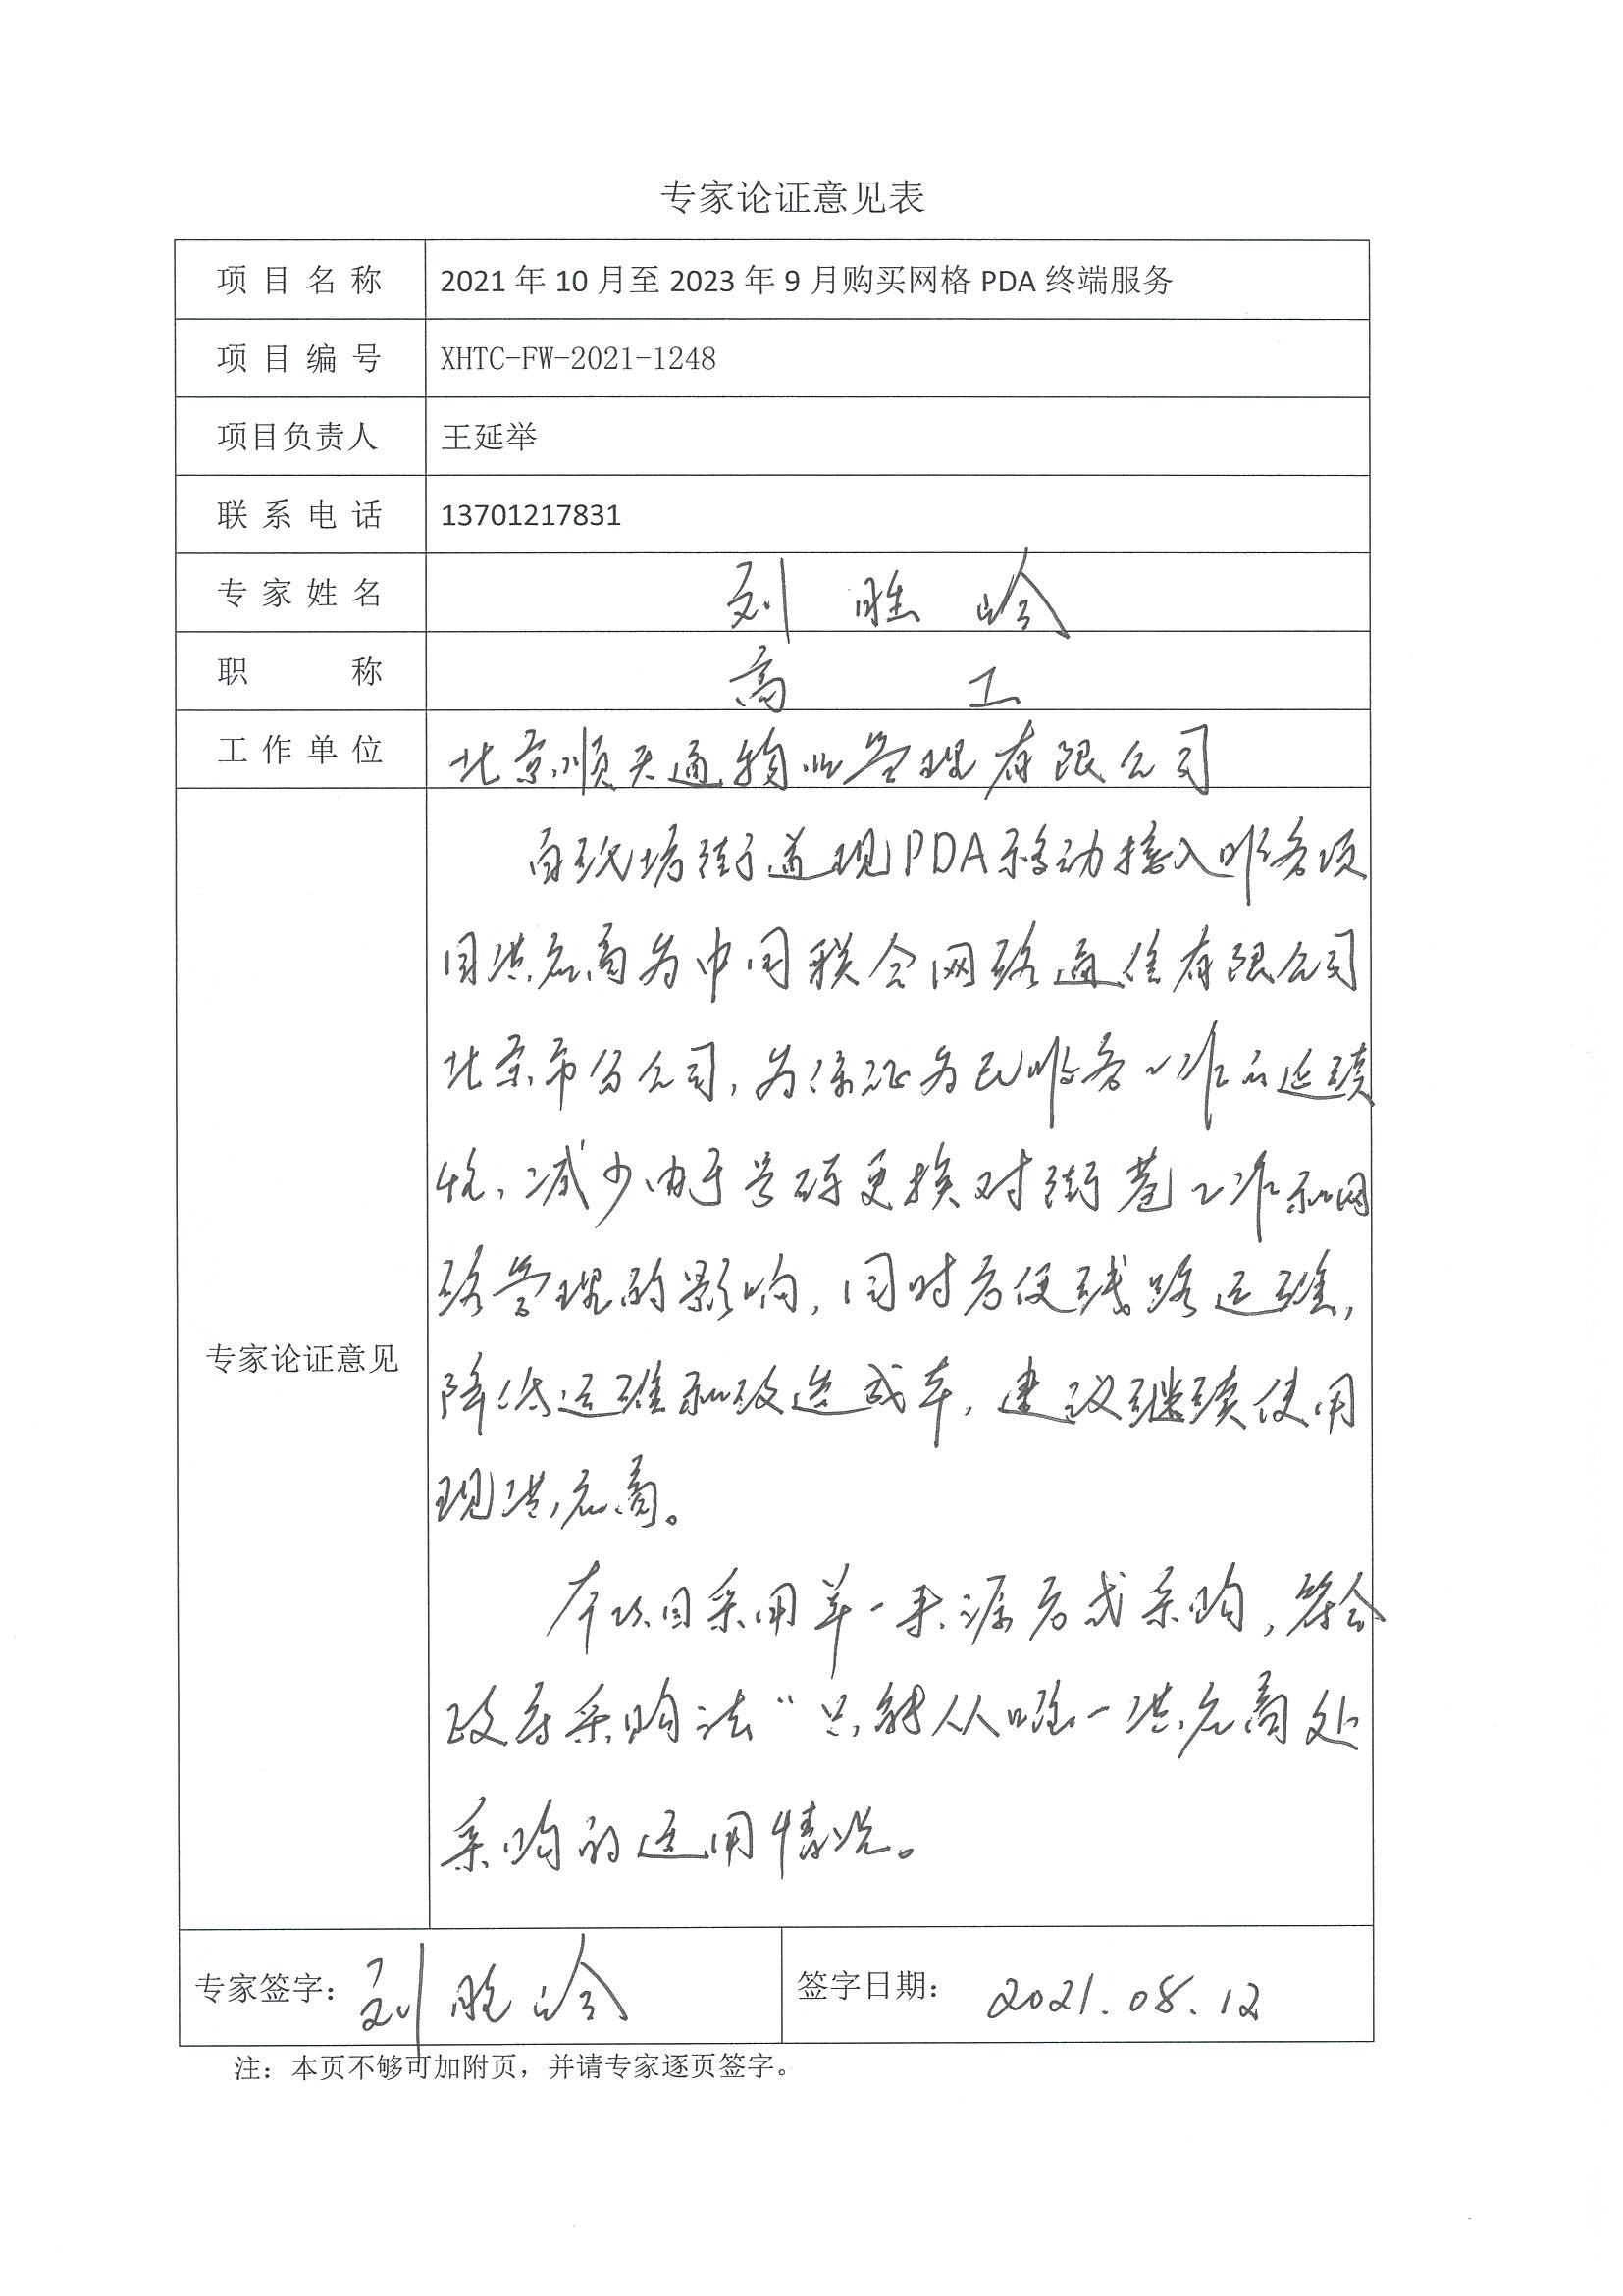 专家论证意见表
项目名称 2021年10月至2023年9月购买网格PDA终端服务
项目编号 XHTC-FW-2021-1248
项目负责人 王延举
联系电话 13701217831
专家姓名 刘胜岭
职称 高工
工作单位 北京顺天通物业管理有限公司
白纸坊街道现PDA移动接入服务项
目供应商为中国联合网络通信有限公司
北京市分公司,为保证为民服务工作的延续
性,减少由于号码更换对街巷工作和网
络管理的影响,同时方便线路运维,
降低运维和改造成本,建议继续使用
现供应商。
专家论证意见
本项目采用单一来源方式采购,符合
政府采购法“只能从唯一供应商处
采购的适用情况。
专家签字: 刘胜岭 签字日期: 2021.08.12
注:本页不够可加附页,并请专家逐页签字。